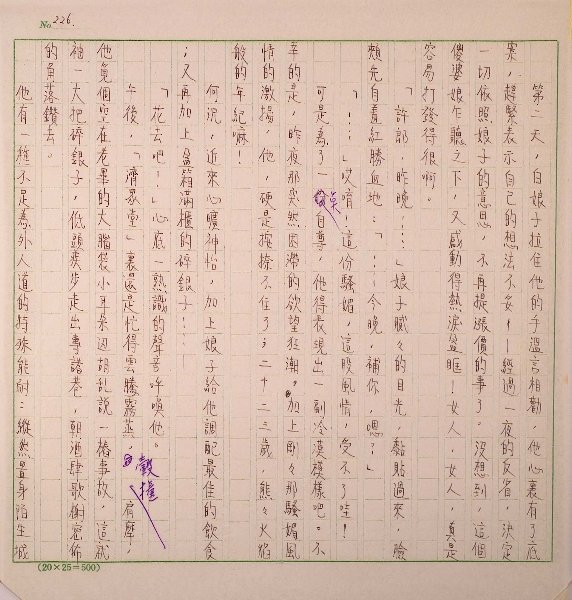 No. 226
第二天，白娘子拉住他的手溫言相勸，他心裏有了底
案，趕緊表示自己的想法不妥——經過一夜的反省，決定
一切依照娘子的意思，不再提漲價的事了。沒想到，這個
傻婆娘乍聽之下，又感動得熱淚盈眶！女人，女人，真是
容易打發得很啊。
「許郎，昨晚……」娘子膩々的目光，黏貼過來，臉
頰先自羞紅勝血地：「……今晚，補你，嗯？」
「……」哎唷！這份騷媚，這股風情，受不了哇！
可是為了一點自尊，他得表現出一副冷漠模樣吧。不
幸的是，昨夜那突然困滯的欲望狂潮，加上剛々那騷媚風
情的激揚，他，硬是按捺不住了；二十二三歲，熊々火焰
般的年紀嘛！
何況，近來心曠神怡，加上娘子給他調配最佳的飲食
；又再加上盈箱滿櫃的碎銀子……
「花去吧！」心底一熟識的聲音呼喚他。
午後，「濟眾堂」裏還是忙得雲騰霧蒸，轂擊肩摩，
他覓個空在老畢的大腦袋小耳朵邊胡亂說一樁事故，這就
袖一大把碎銀子，低頭疾步走出專諸巷，朝酒肆歌榭密佈
的角落鑽去。
他有一種不足為外人道的特殊能耐：縱然置身陌生城
(20×25=500)